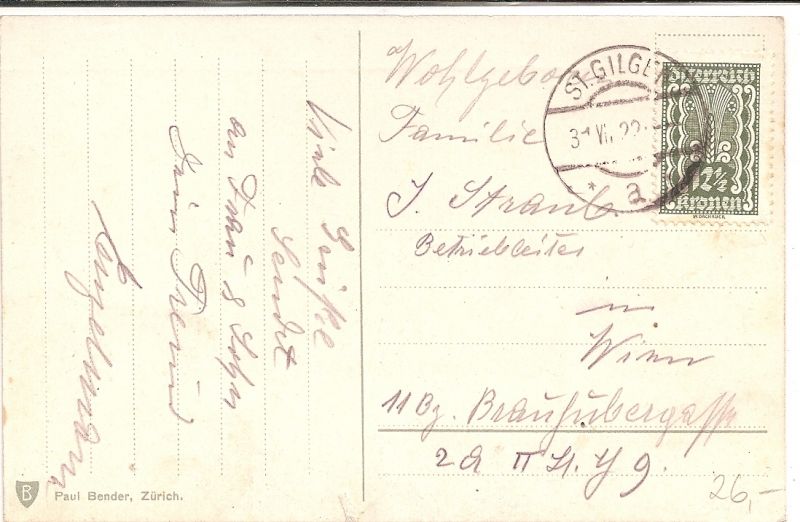 Viele Grüße
sendet
an Frau & Sohn
Dein Freund
Engelmann
Wohlgeboren
Familie
J. Straub
Betriebsleiter
in
Wien
11 Bz. Brauhubergasse
2a II St. 9.
26,-
ST. GILGEN
31 VII 22
* a
Österreich
12½
Kronen
B
Paul Bender, Zürich.